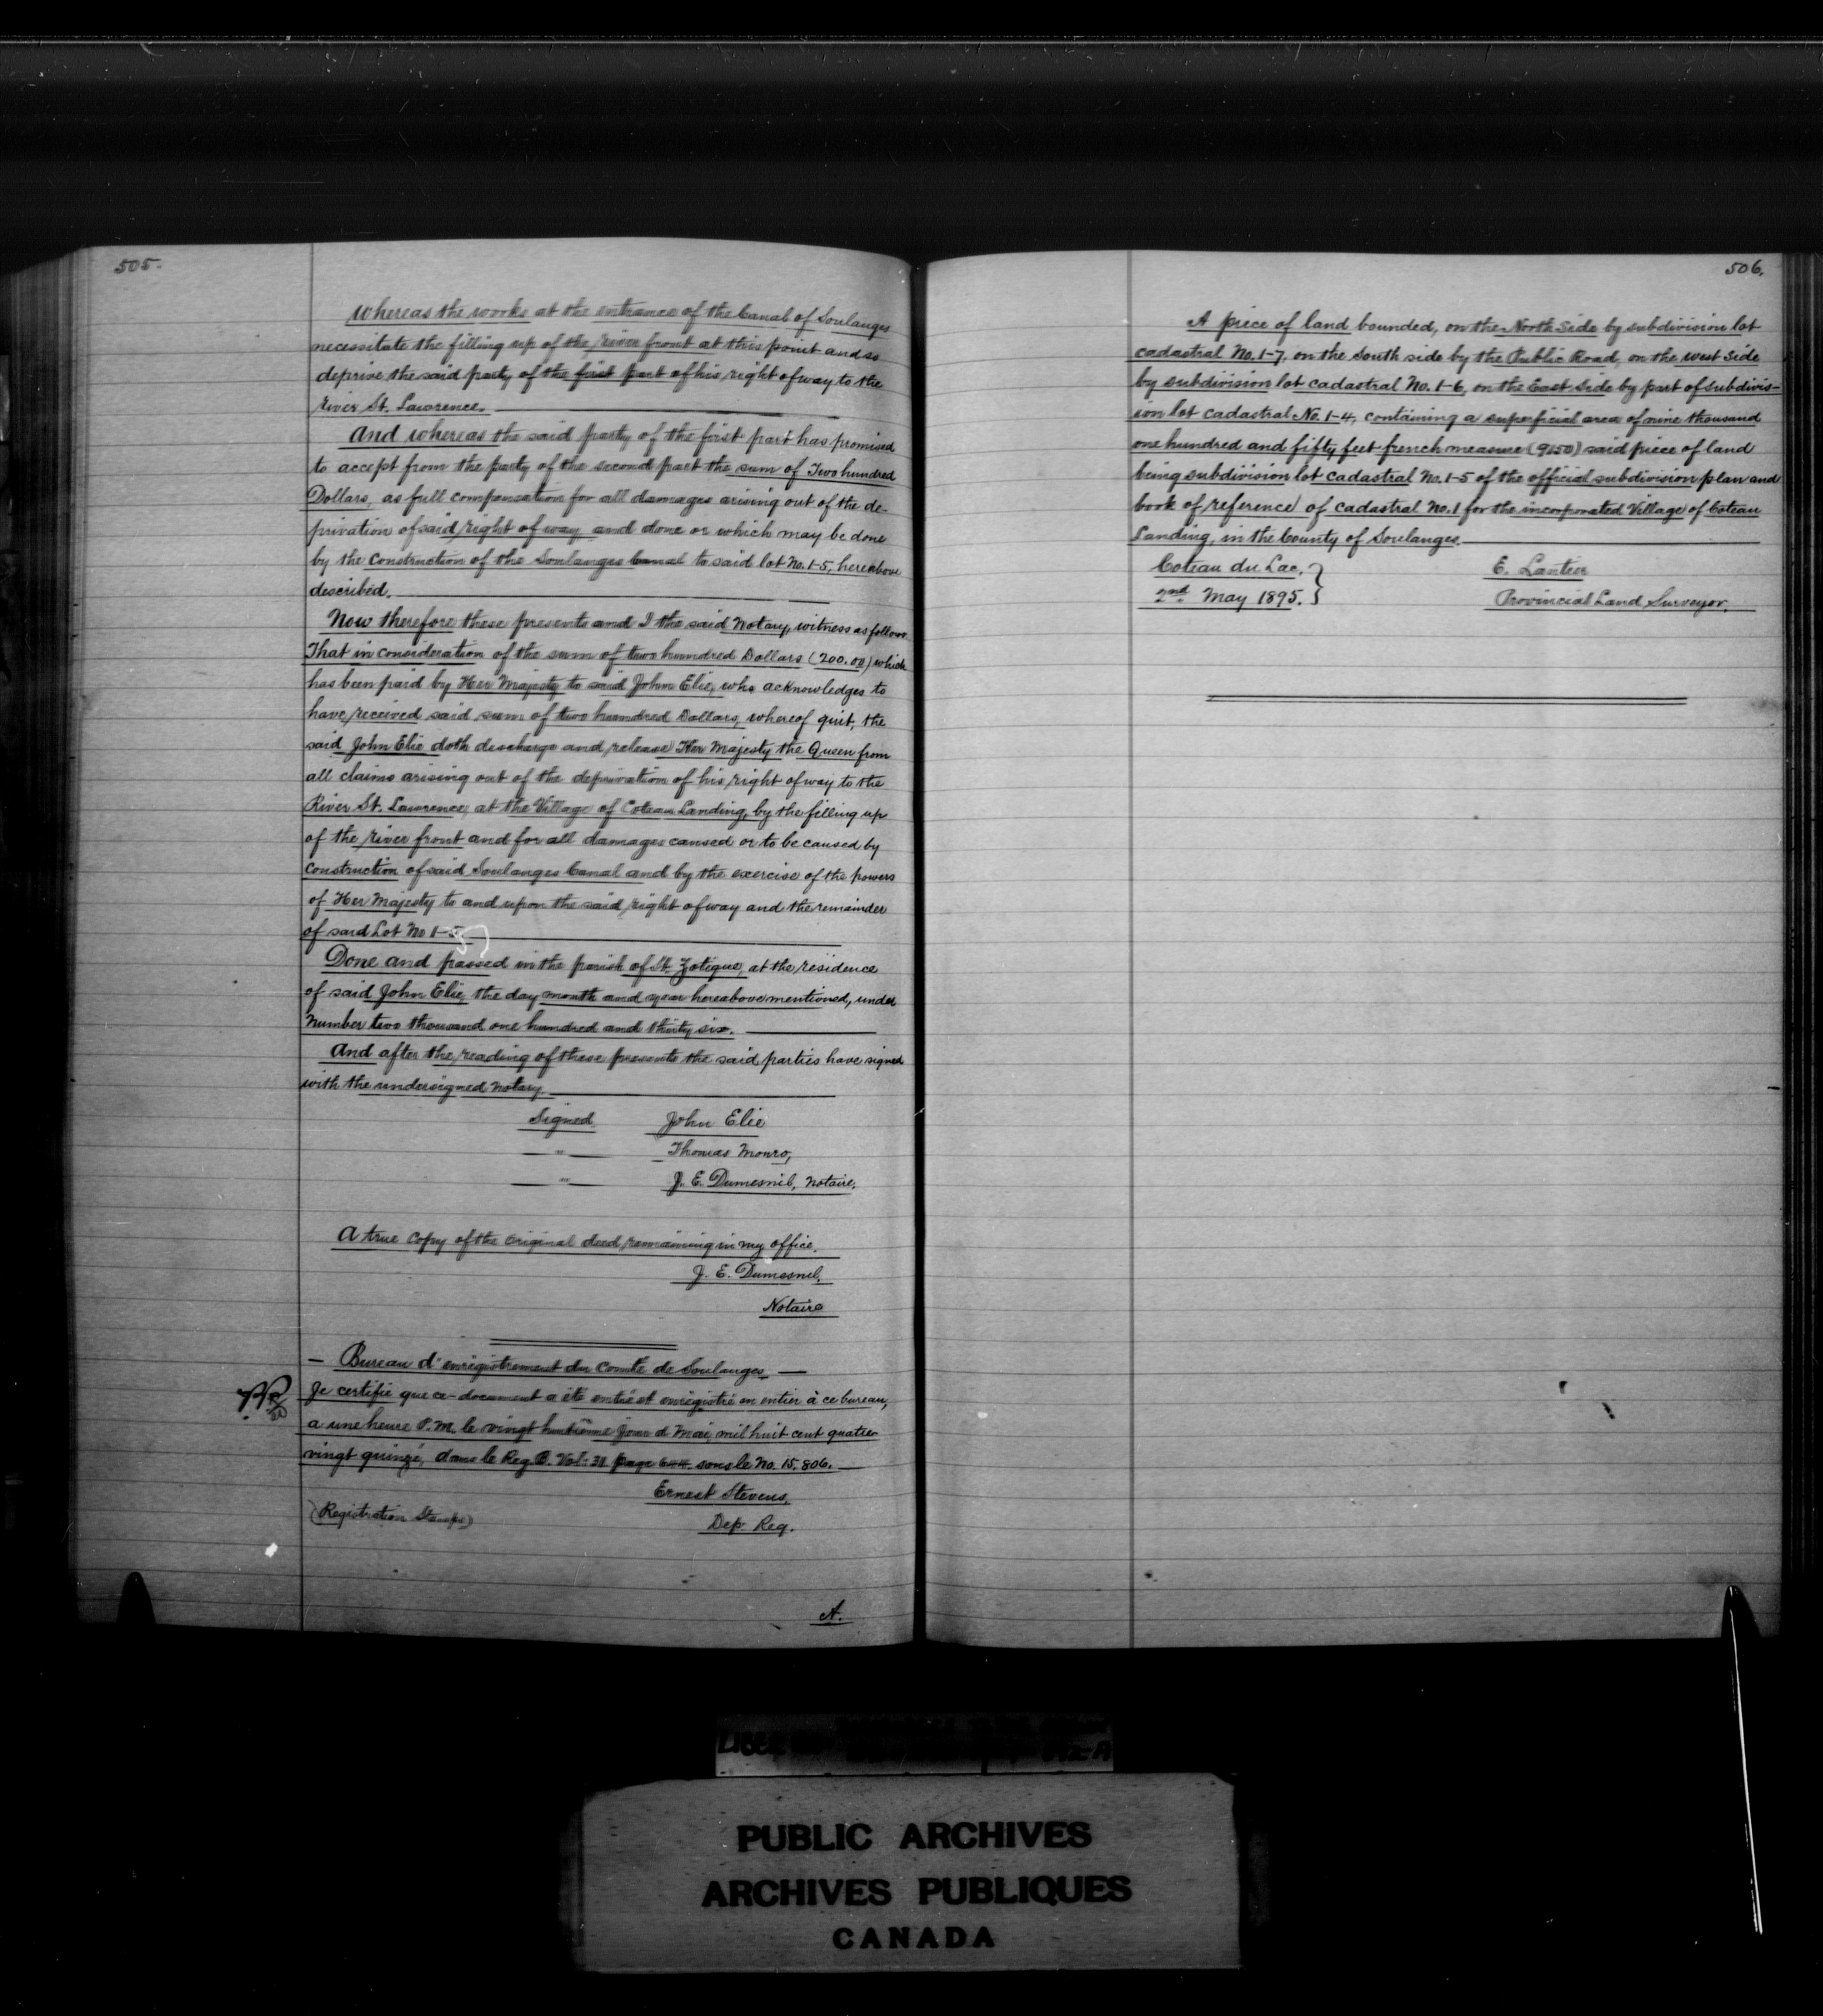 505.
Whereas the works at the entrance of the Canal of Soulanges
necessitate the filling up of the river front at this point and so
deprive the said party of the first part of his right of way to the
river St. Lawrence.
And whereas the said party of the first part has promised
to accept from the party of the second part the sum of Two hundred
Dollars, as full compensation for all damages arising out of the de-
privation of said right of way and done or which may be done
by the construction of the Soulanges Canal to said lot No. 1-5, hereabove
described.
Now therefore these presents and I the said Notary, witness as follows
That in consideration of the sum of two hundred Dollars (200.00) which
has been paid by Her Majesty to said John Elie, who acknowledges to
have received said sum of two hundred Dollars, whereof quit, the
said John Elie doth descharge and release Her Majesty the Queen from
all claims arising out of the deprivation of his right of way to the
River St. Lawrence, at the Village of Coteau Landing, by the filling up
of the river front and for all damages caused or to be caused by
construction of said Soulanges Canal and by the exercise of the powers
of Her Majesty to and upon the said right of way and the remainder
of said Lot No 1-5
Done and passed in the parish of St. Zotique, at the residence
of said John Elie, the day month and year hereabove mentioned, under
number two thousand one hundred and thirty six.
And after the reading of these presents the said parties have signed
with the undersigned Notary.
Signed John Elie
" Thomas Monro,
" J. E. Dumesnil, Notaire.
A true copy of the original deed remaining in my office.
J. E. Dumesnil,
Notaire
— Bureau d'enregistrement du Comté de Soulanges —
Je certifie que ce document a été entré et enregistré en entier à ce bureau,
a une heure P.M. le vingt huitième jour de Mai, mil huit cent quatre
vingt quinze, dans le Reg. B. Vol: 31 page sous le No. 15,806.
Ernest Stevens,
(Registration Stamps)
Dep. Reg.
A.
506.
A piece of land bounded, on the North Side by subdivision lot
cadastral No. 1-7, on the South side by the Public Road, on the west Side
by subdivision lot cadastral No. 1-6, on the East Side by part of subdivis-
ion lot cadastral No. 1-4, containing a superficial area of nine thousand
one hundred and fifty feet french measure (9150) said piece of land
being subdivision lot cadastral No. 1-5 of the official subdivision plan and
book of reference of cadastral No. 1 for the incorporated Village of Coteau
Landing, in the County of Soulanges.
Coteau du Lac, } E. Lantier
2nd May 1895. } Provincial Land Surveyor.
PUBLIC ARCHIVES
ARCHIVES PUBLIQUES
CANADA